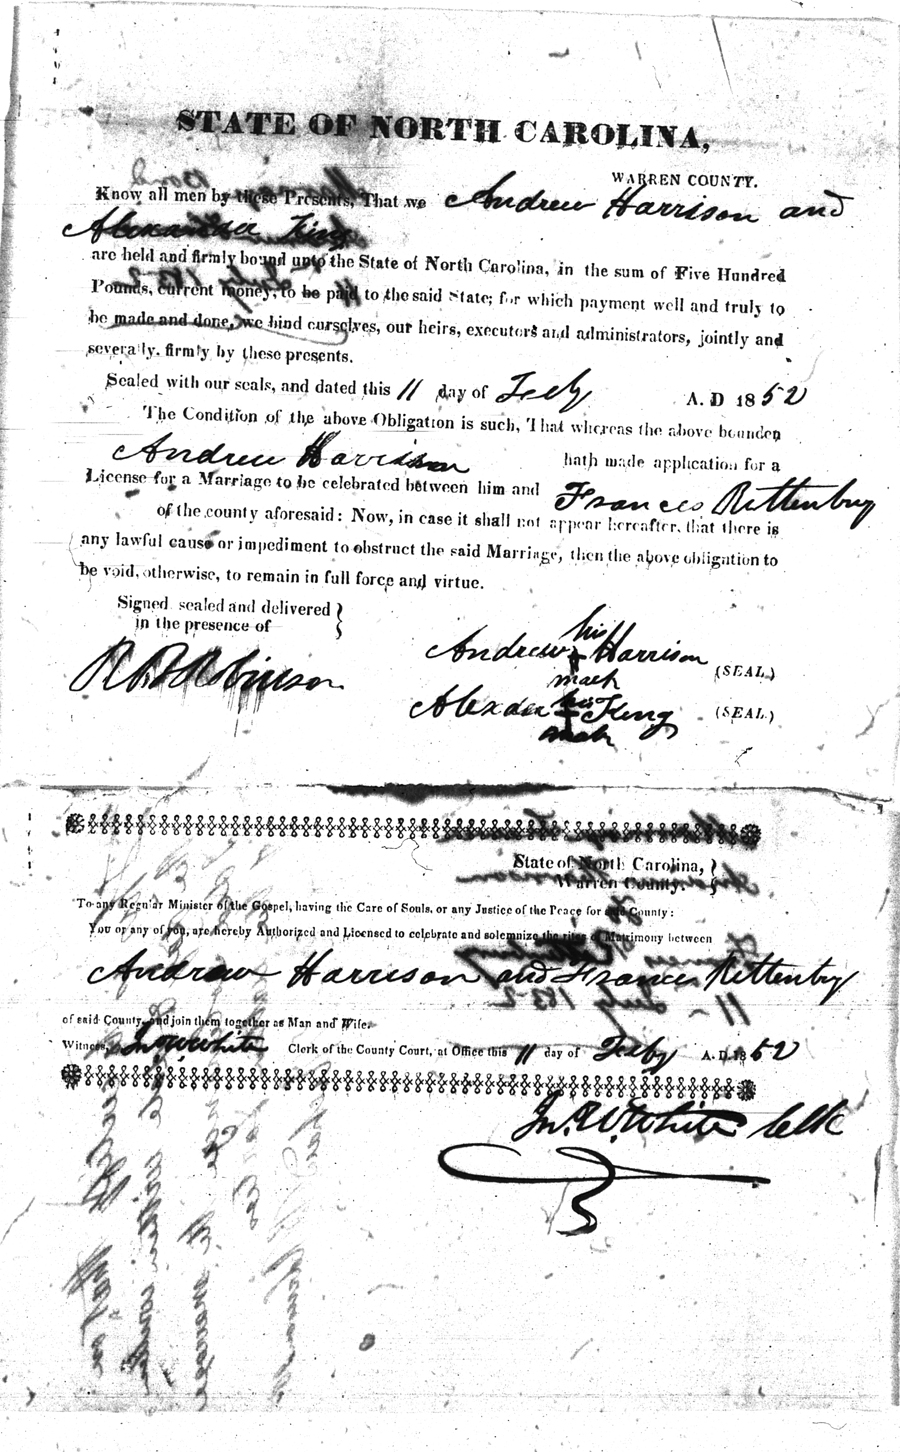 STATE OF NORTH CAROLINA,
WARREN COUNTY.
Know all men by these Presents, That we Andrew Harrison and
Alexander King
are held and firmly bound unto the State of North Carolina, in the sum of Five Hundred
Pounds, current money, to be paid to the said State; for which payment well and truly to
be made and done, we bind ourselves, our heirs, executors and administrators, jointly and
severally, firmly by these presents.
Sealed with our seals, and dated this 11 day of July A. D 1852
The Condition of the above Obligation is such, That whereas the above bounden
Andrew Harrison hath made application for a
License for a Marriage to be celebrated between him and Frances Rittenbury
of the county aforesaid: Now, in case it shall not appear hereafter, that there is
any lawful cause or impediment to obstruct the said Marriage, then the above obligation to
be void, otherwise, to remain in full force and virtue.
Signed sealed and delivered
in the presence of
his
Andrew + Harrison (SEAL)
mark
Robinson
his
Alexder + King (SEAL)
mark
State of North Carolina,
Warren County.
To any Regular Minister of the Gospel, having the Care of Souls, or any Justice of the Peace for said County:
You or any of you, are hereby Authorized and Licensed to celebrate and solemnize the rites of Matrimony between
Andrew Harrison and Frances Rittenbury
of said County, and join them together as Man and Wife.
Witness, Jno W White Clerk of the County Court, at Office this 11 day of July A. D. 1852
Jno. W. White Clk